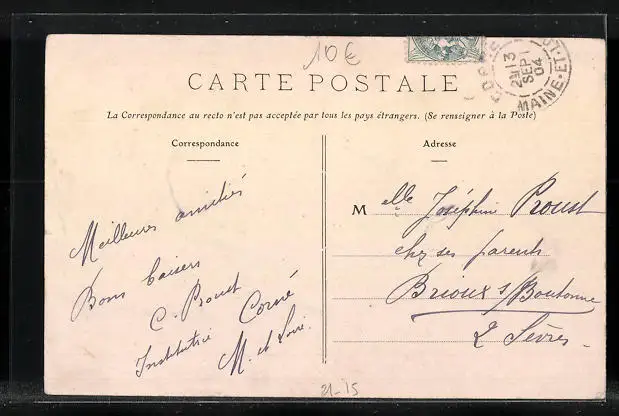 10€
CARTE POSTALE
La Correspondance au recto n'est pas acceptée par tous les pays étrangers. (Se renseigner à la Poste)
Correspondance
Meilleures amitiés
Bons baisers
C. Proust
Institutrice Corné
M. et Loire.
Adresse
M elle Joséphine Proust
chez ses parents
Brioux s/Boutonne
2 Sèvres
13
SEPT
04
MAINE-ET-
21-15